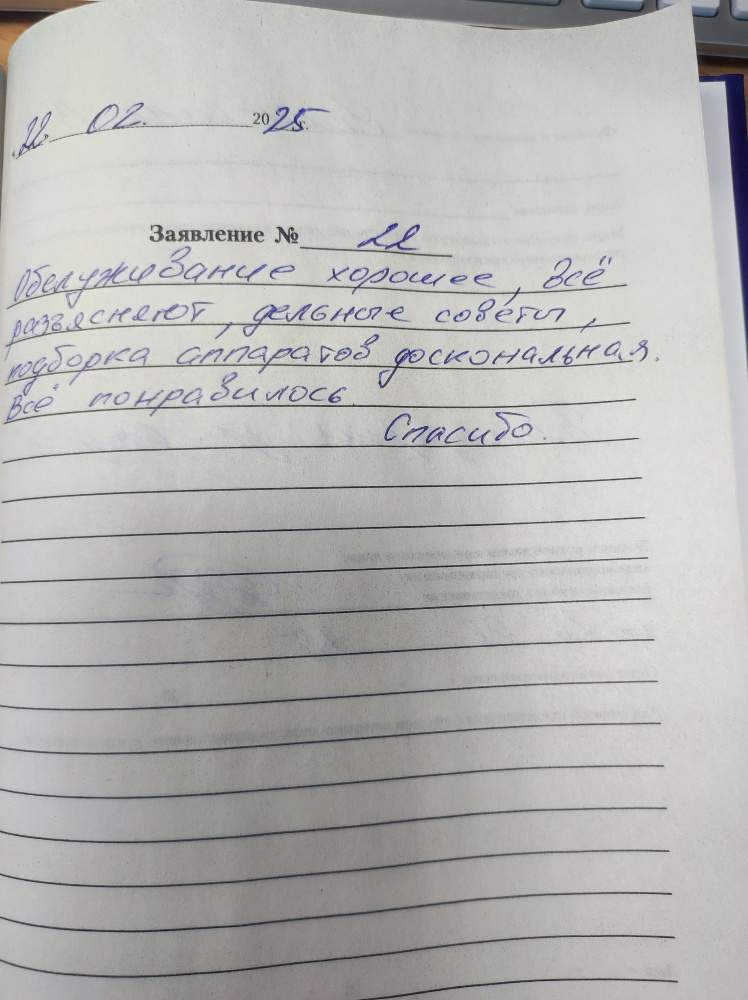 „22" 02. 2025г.
Заявление № 22
Обслуживание хорошее, Всё
разъясняют, дельные советы,
подборка аппаратов доскональная.
Всё понравилось.
Спасибо.